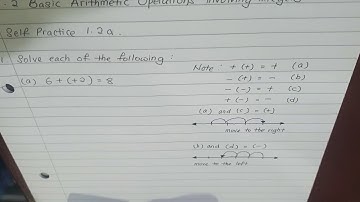 .2 Basic Arithmetic Operations involving
Self Practice 1.2a.
1 Solve each of the following :
(a) 6 + (+2) = 8
Note : + (+) = + (a)
- (+) = - (b)
- (-) = + (c)
+ (-) = - (d)
(a) and (c) = (+)
move to the right
(b) and (d) = (-)
move to the left